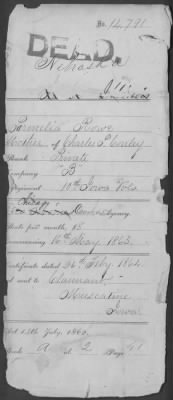 No. 14,791
DEAD
Nebraska
Permelia Rowe
Mother of Charles P. Conley
Rank Private
Company "B"
Regiment 10th Iowa Vols
Chicago Agency
Rate per month $8
Commencing 16th May 1863.
Certificate dated 26th Feby 1864
and sent to Claimant,
Muscatine
Iowa
Act 14th July, 1862.
Book A Vol. 2 Page 41